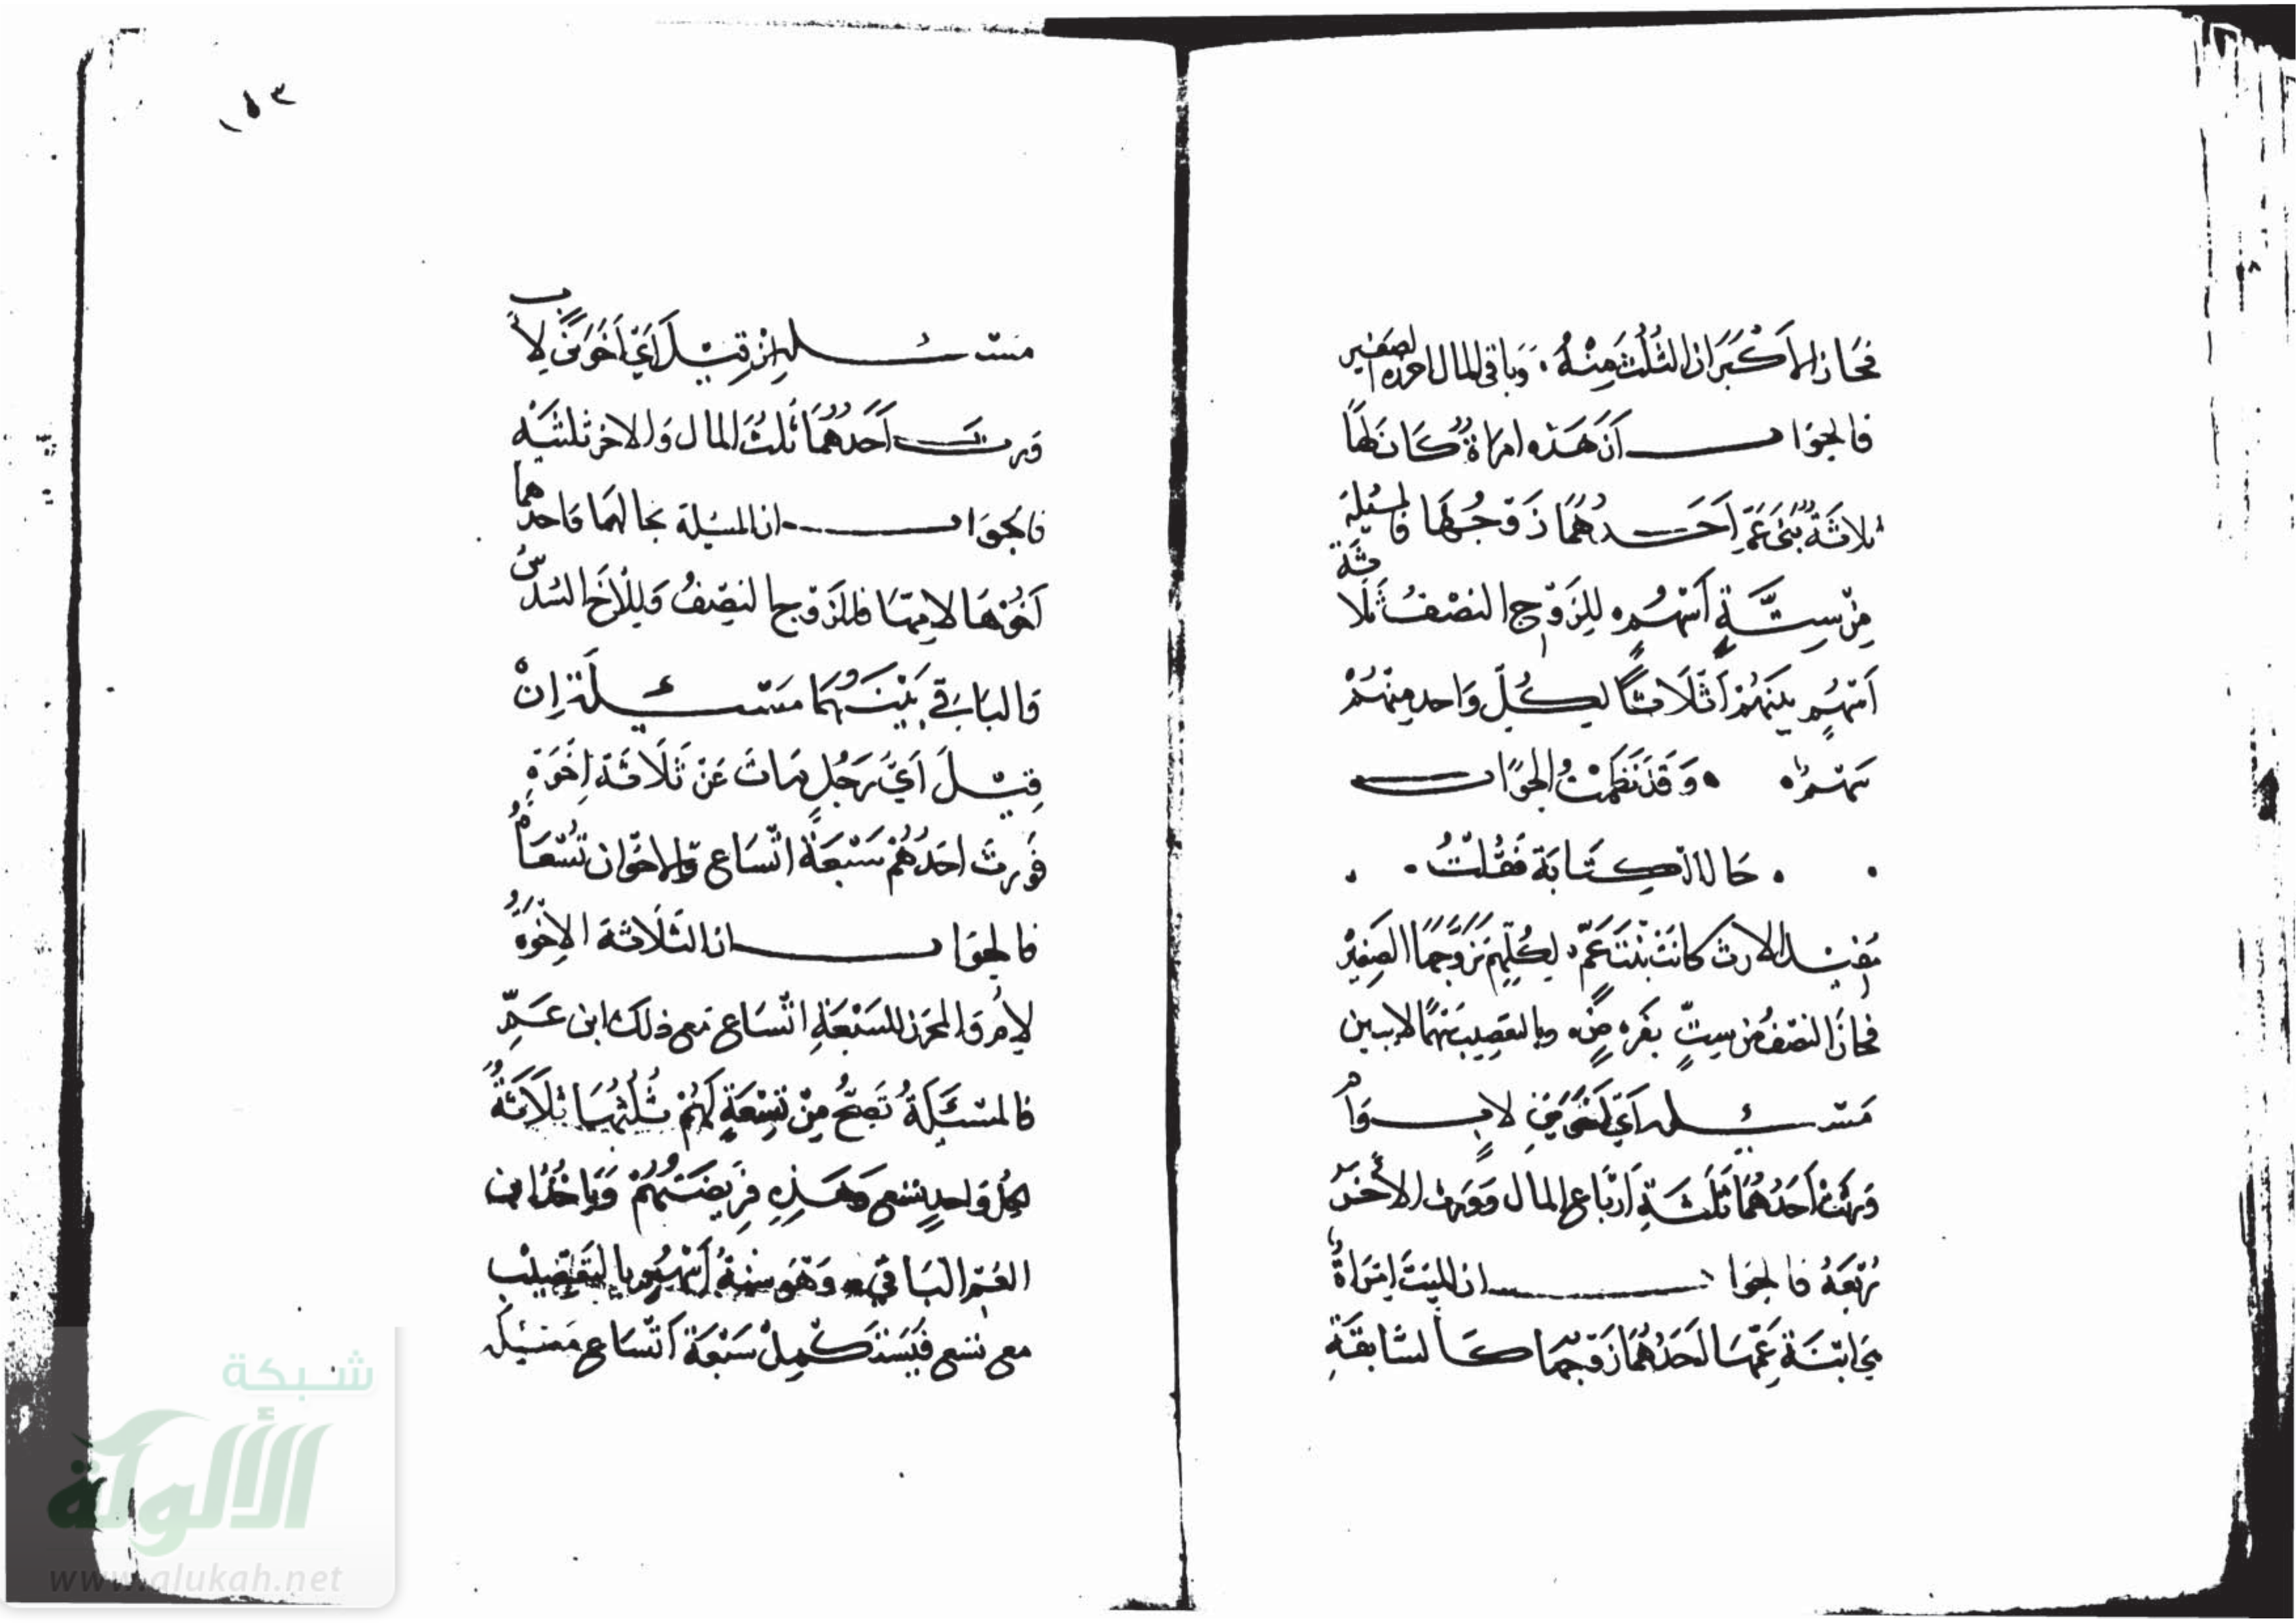 فحاز الأكبران الثلث منه . وباقي المال احرزه الصغير
فالجواب أن هذه امراة كان لها
ثلاثة بني عم أحدهما زوجها فالمسئلة
من ستة أسهم للزوج النصف ثلاثة
أسهم بينهم أثلاثا لكل واحد منهم
سهم وقد نظمت الجواب
حال الكتابة فقلت
الارث كانت بنت عم لكلهم تزوجها الصغير
فحاز النصف من ست بفرض وبالتعصيب سهما
مسئلة أي لأب وأم
ورث أحدهما ثلثة أرباع المال وورث الأخر
ربعه فالجواب ان الميت امراة
ابنا عمها احدهما زوجها كالسابقة
١٥٣
مسئلة إن قيل أي أخوين لأب
ورث أحدهما ثلث المال والاخر ثلثيه
فالجواب ان المسئلة بحالهما واحدهما
أخوها لامها فللزوج النصف وللأخ السدس
والباقي بينهما مسئلة إن
قيل أي رجل مات عن ثلاثة إخوة
فورث احدهم سبعة اتساع والاخوان تسعا
فالجواب ان الثلاثة الاخوة
لأم والمحرز للسبعة اتساع مع ذلك ابن عم
فالمسئلة تصح من تسعة لهم ثلثها ثلاثة
لكل واحد تسع وهذه فريضتهم وياخذ ابن
العم الباقي وهو ستة أسهم بالتعصيب
مع تسع فيستكمل سبعة أتساع مسئلة
شبكة
الألوكة
www.alukah.net